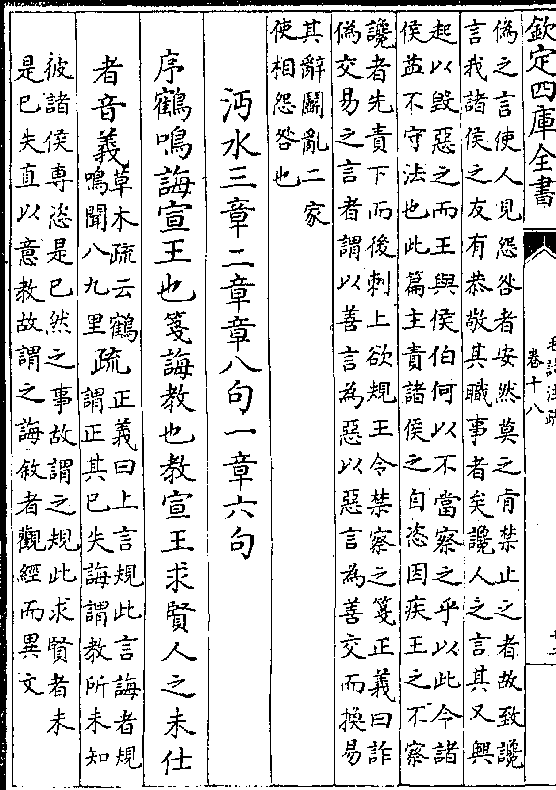 欽定四庫全書
毛詩注疏
卷十八
偽之言使人見怨咎者安然莫之肯禁止之者故致讒
言我諸侯之友有恭敬其職事者矣讒人之言其又興
起以毁惡之而王與侯伯何以不當察之乎以此今諸
侯益不守法也此篇主責諸侯之自恣因疾王之不察
讒者先責下而後刺上欲規王令禁察之箋正義曰詐
偽交易之言者謂以善言為惡以惡言為善交而換易
其辭鬬亂二家
使相怨咎也
沔水三章二章章八句一章六句
序鶴鳴誨宣王也箋誨教也教宣王求賢人之未仕
者音義
草木疏云鶴
鳴聞八九里
疏
正義曰上言規此言誨者規
謂正其已失誨謂教所未知
彼諸侯專恣是已然之事故謂之規此求賢者未
是已失直以意教故謂之誨敘者觀經而異文